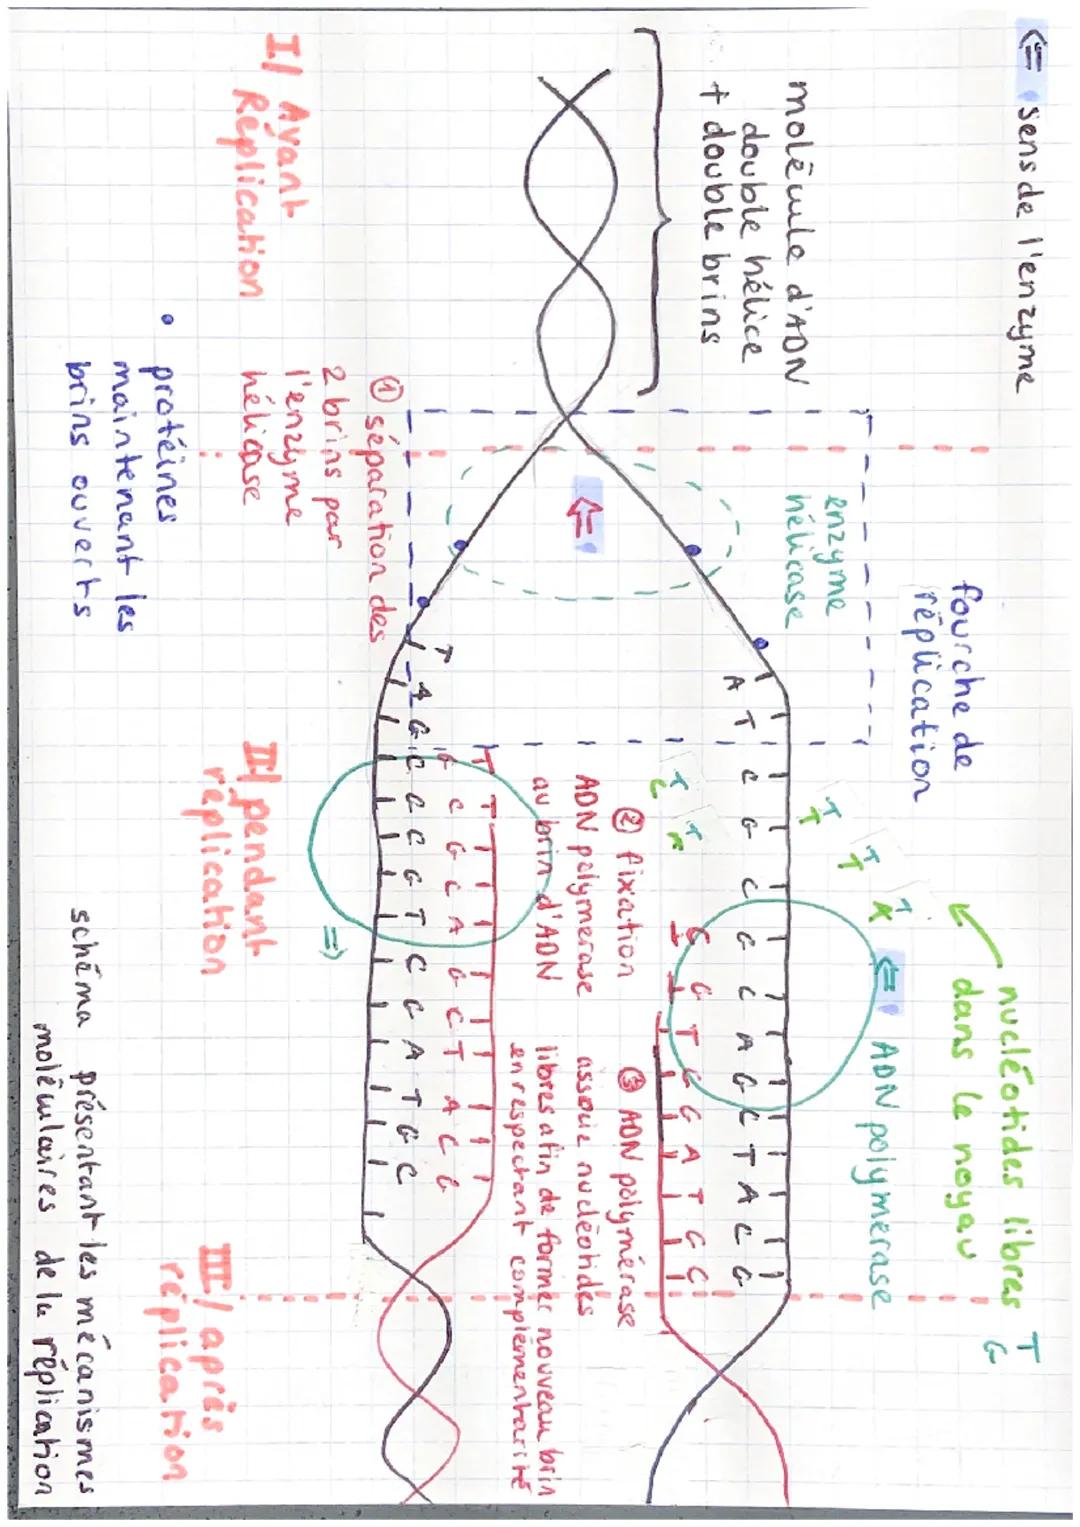 ⇐ sens de l'enzyme
molécule d'ADN
double hélice
+ double brins
fourche de
réplication
enzyme
hélicase
nucléotides libres
dans le noyau
T
G
⇐ ADN polymerase
A T C G C G C A G C T A C G
G G T C G A T G C
② fixation
ADN polymerase
au brin d'ADN
③ ADN polymérase
associe nucléotides
libres afin de former nouveau brin
en respectant complémentarité
① séparation des
2 brins par
l'enzyme
hélicase
• protéines
maintenant les
brins ouverts
I/ Avant
Réplication
II/ pendant
réplication
III/ après
réplication
schéma présentant les mécanismes
moléculaires de la réplication